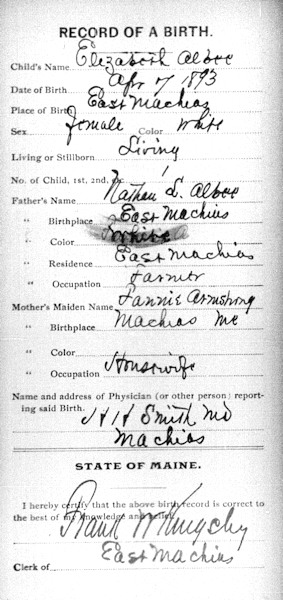 RECORD OF A BIRTH.
Child's Name Elizabeth Albee
Date of Birth Apr 7 1893
Place of Birth East Machias
Sex Female Color White
Living or Stillborn Living
No. of Child, 1st, 2nd, 1
Father's Name Nathan L. Albee
" Birthplace East Machias
" Color White
" Residence East Machias
" Occupation Farmer
Mother's Maiden Name Fannie Armstrong
" Birthplace Machias Me
" Color
" Occupation Housewife
Name and address of Physician (or other person) report-
ing said Birth.
Smith MD
Machias
STATE OF MAINE.
I hereby certify that the above birth record is correct to
the best of my knowledge and belief.
Frank W
East Machias
Clerk of